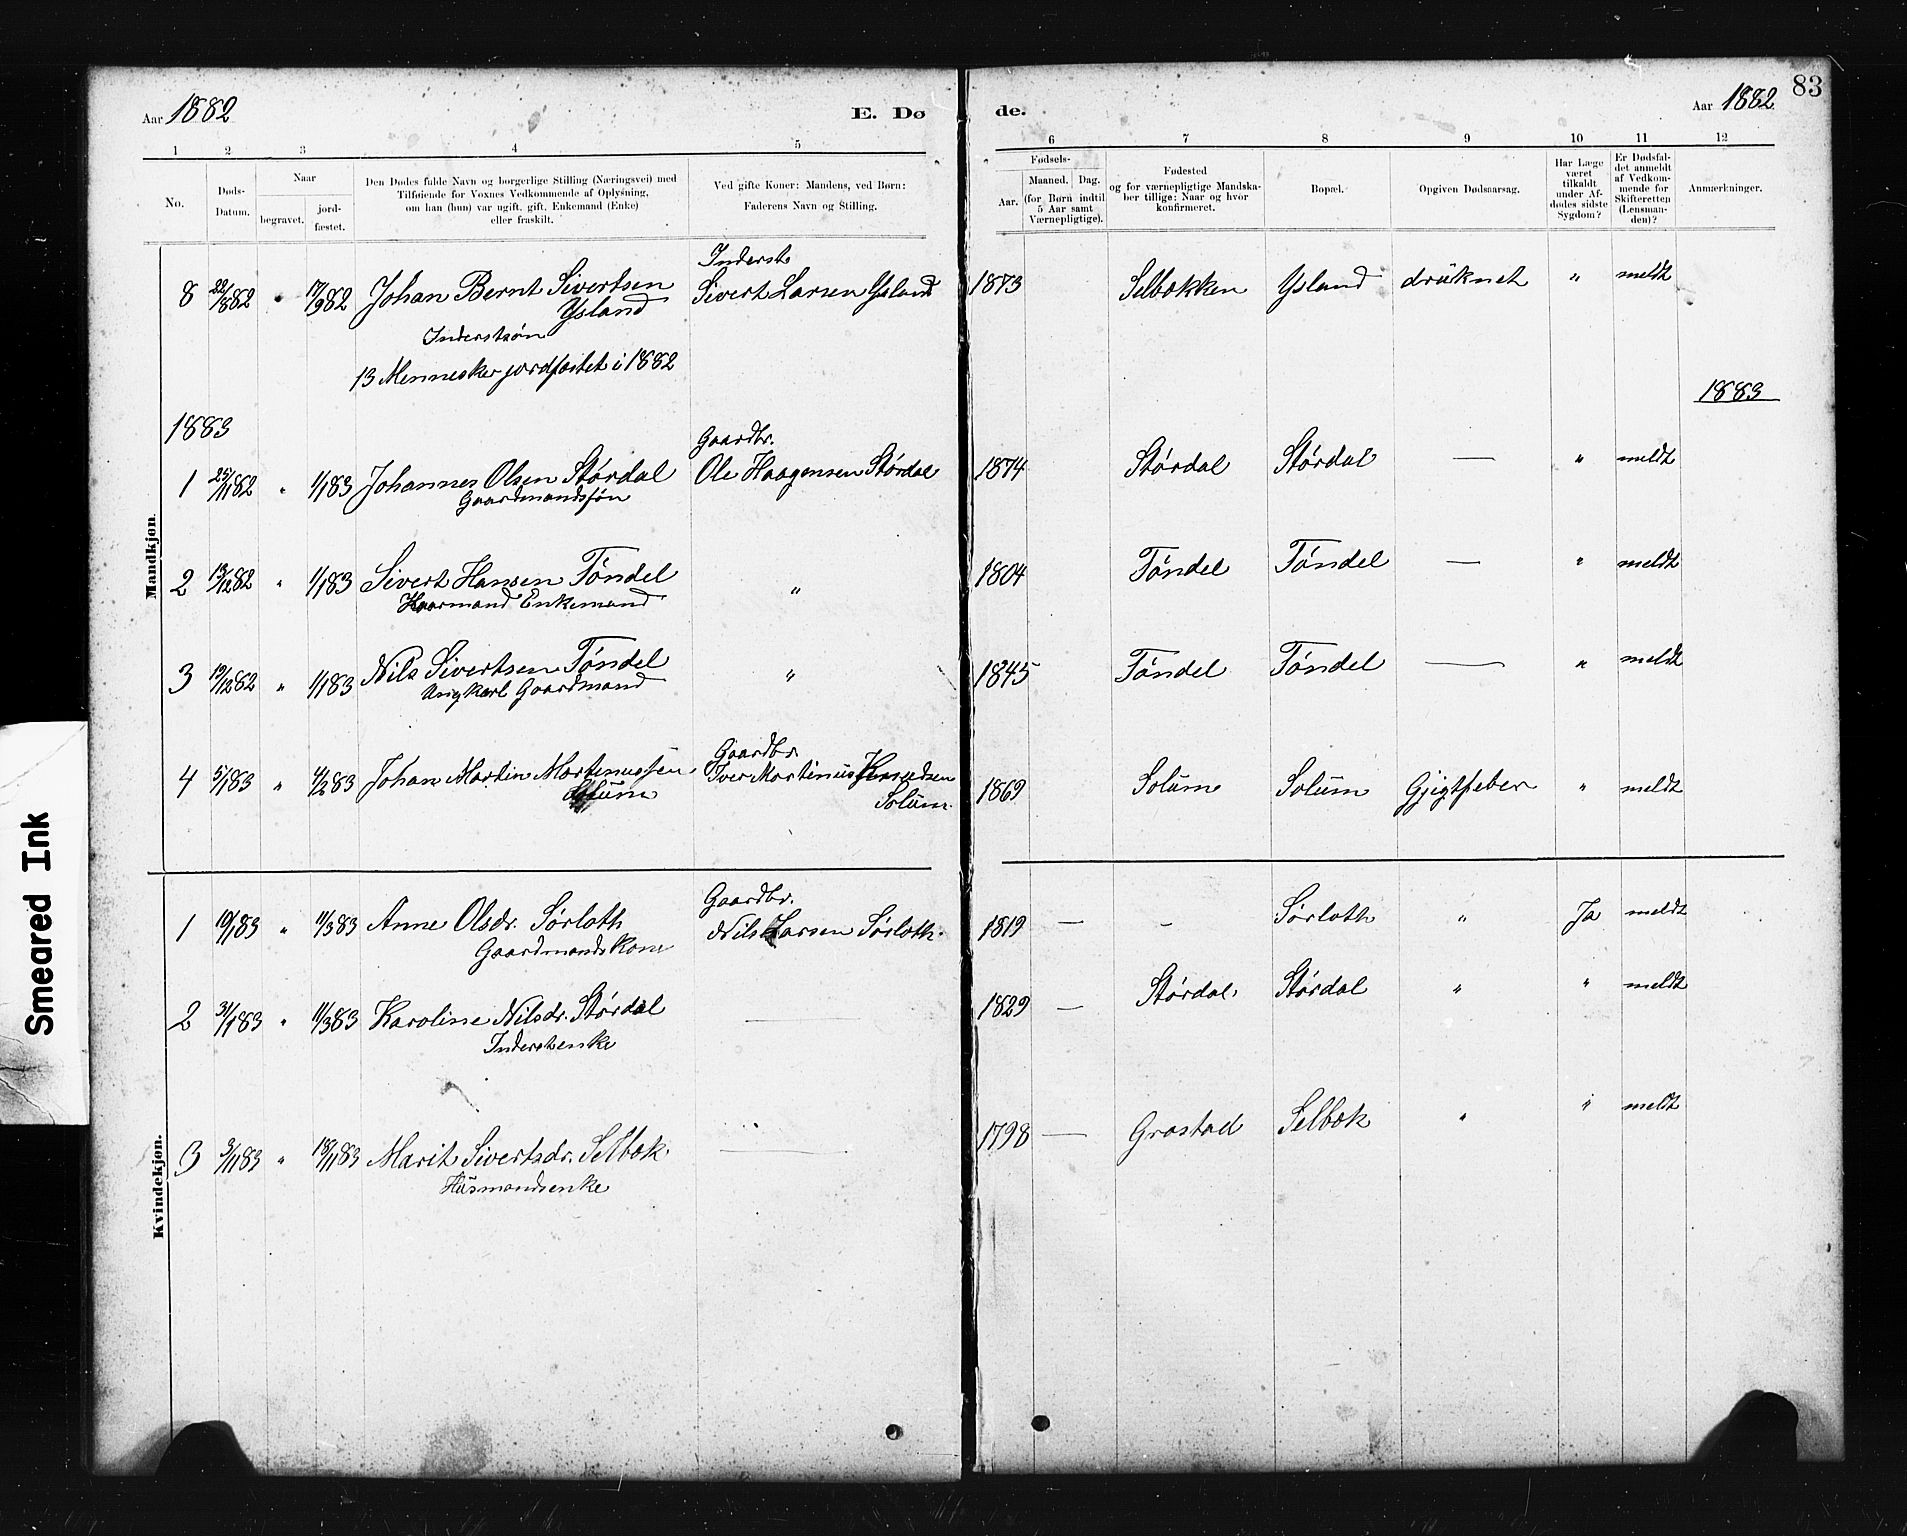 83
Aar 1882
E. Dø
de.
Aar 1882
1 2 3 4 5 6 7 8 9 10 11 12
No.
Døds-
Datum.
Naar
begravet.
jord-
fæstet.
Den Dødes fulde Navn og borgerlige Stilling (Næringsvei) med
Tilføiende for Voxnes Vedkommende af Oplysning,
om han (hun) var ugift, gift, Enkemand (Enke)
eller fraskilt.
Ved gifte Koner: Mandens, ved Børn:
Faderens Navn og Stilling.
Fødsels-
Aar.
Maaned. Dag.
(for Børn indtil
5 Aar samt
Værnepligtige).
Fødested
og for værnepligtige Mandska-
ber tillige: Naar og hvor
konfirmeret.
Bopæl.
Opgiven Dødsaarsag.
Har Læge
været
tilkaldt
under Af-
dødes sidste
Sygdom?
Er Dødsfal-
det anmeldt
af Vedkom-
mende for
Skifteretten
(Lensman-
den)?
Anmærkninger.
Mandkjøn.
Inderst
8 22/882 " 17/982 Johan Bernt Sivertsen Sivert Larsen Ysland 1873 Selbækken Ysland drüknet " meldt
Ysland
Inderstsøn
13 Mennesker jordfæstet i 1882
1883
1883
Gaardbr.
1 25/1182 " 1/183 Johannes Olsen Størdal Ole Haagensen Størdal 1874 Størdal Størdal — " meldt
Gaardmandssøn
2 13/1282 " 1/183 Sivert Hansen Tøndel " 1804 Tøndel Tøndel — " meldt
Enkemand
3 19/1282 " 1/183 Nils Sivertsen Tøndel " 1845 Tøndel Tøndel — " meldt
Ungkarl Gaardmand
Gaardbr.
4 5/183 " 4/283 Johan Martin Martinussen Iver Martinus Knudsen 1869 Solüm Solüm Gjigtfeber " meldt
Solüm Solüm.
Kvindekjøn.
Gaardbr.
1 19/183 " 11/383 Anne Olsdr. Sørloth Nils Larsen Sørloth. 1819 — - Sørloth " Ja meldt
Gaardmandskone
2 31/183 " 11/383 Karoline Nilsdr. Størdal — 1829 — Størdal. Størdal " " meldt
Inderstenke
3 3/1183 " 18/1183 Marit Sivertsdr. Selbæk. — 1798 — Grostad Selbæk " " meldt
Hüsmandsenke
Smeared Ink